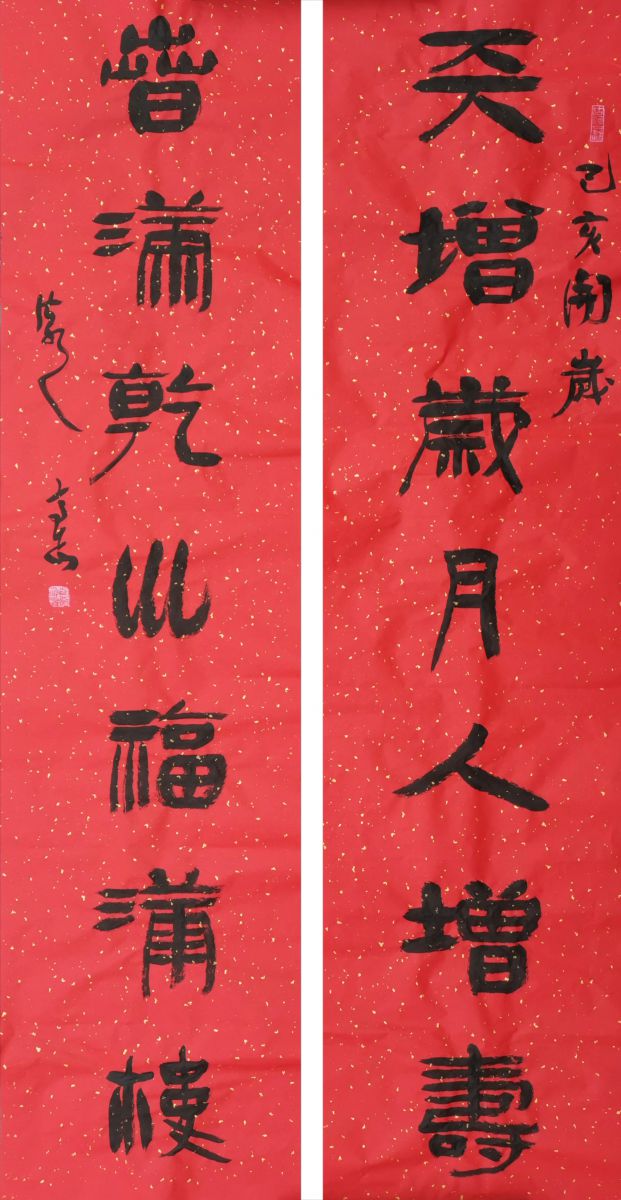 己亥開歲
天增歲月人增壽
旾滿乾巛福滿樓